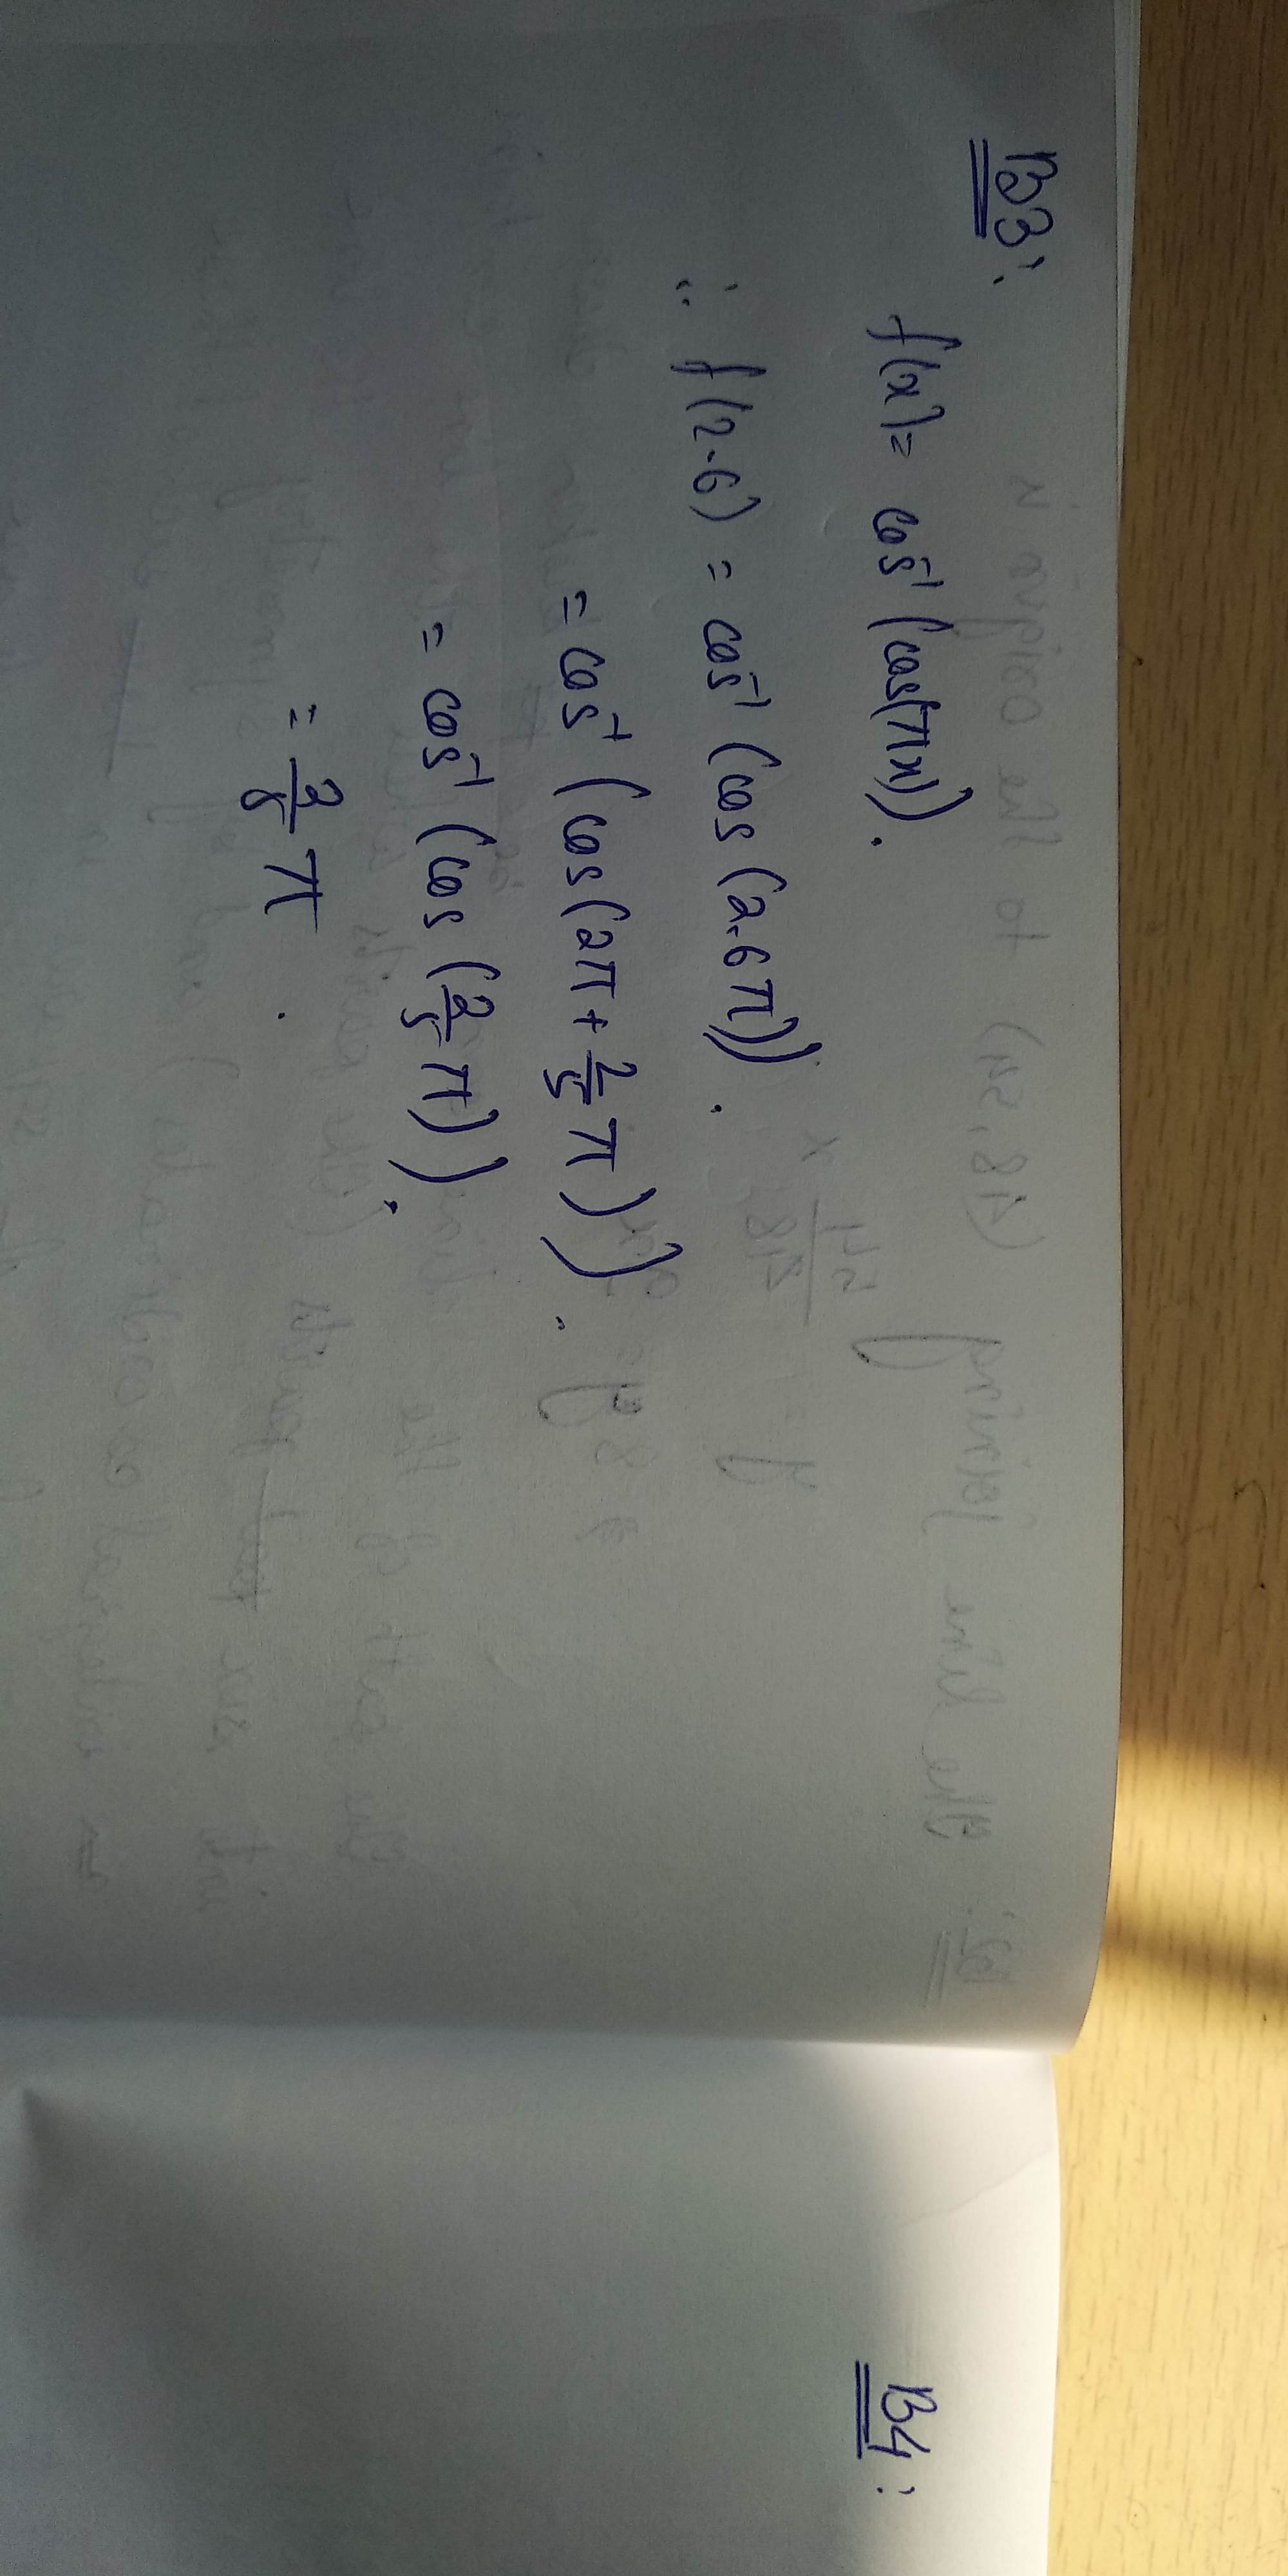 B3:
f(x) = cos⁻¹(cos(πx)).
∴ f(2.6) = cos⁻¹(cos(2.6π)).
= cos⁻¹(cos(2π + 3/5 π)).
= cos⁻¹(cos(3/5 π)).
= 3/5 π.
B4: